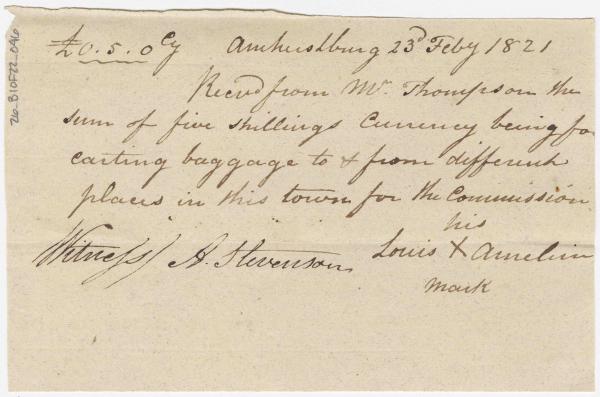 £0.5.0 Cy Amherstburg 23d Feby 1821
Recvd from Mr Thompson the
sum of five shillings Currency being for
carting baggage to & from different
places in this town for the Commission
his
Witness A. Stevenson Louis X Amelin
mark
26-B10F22-046